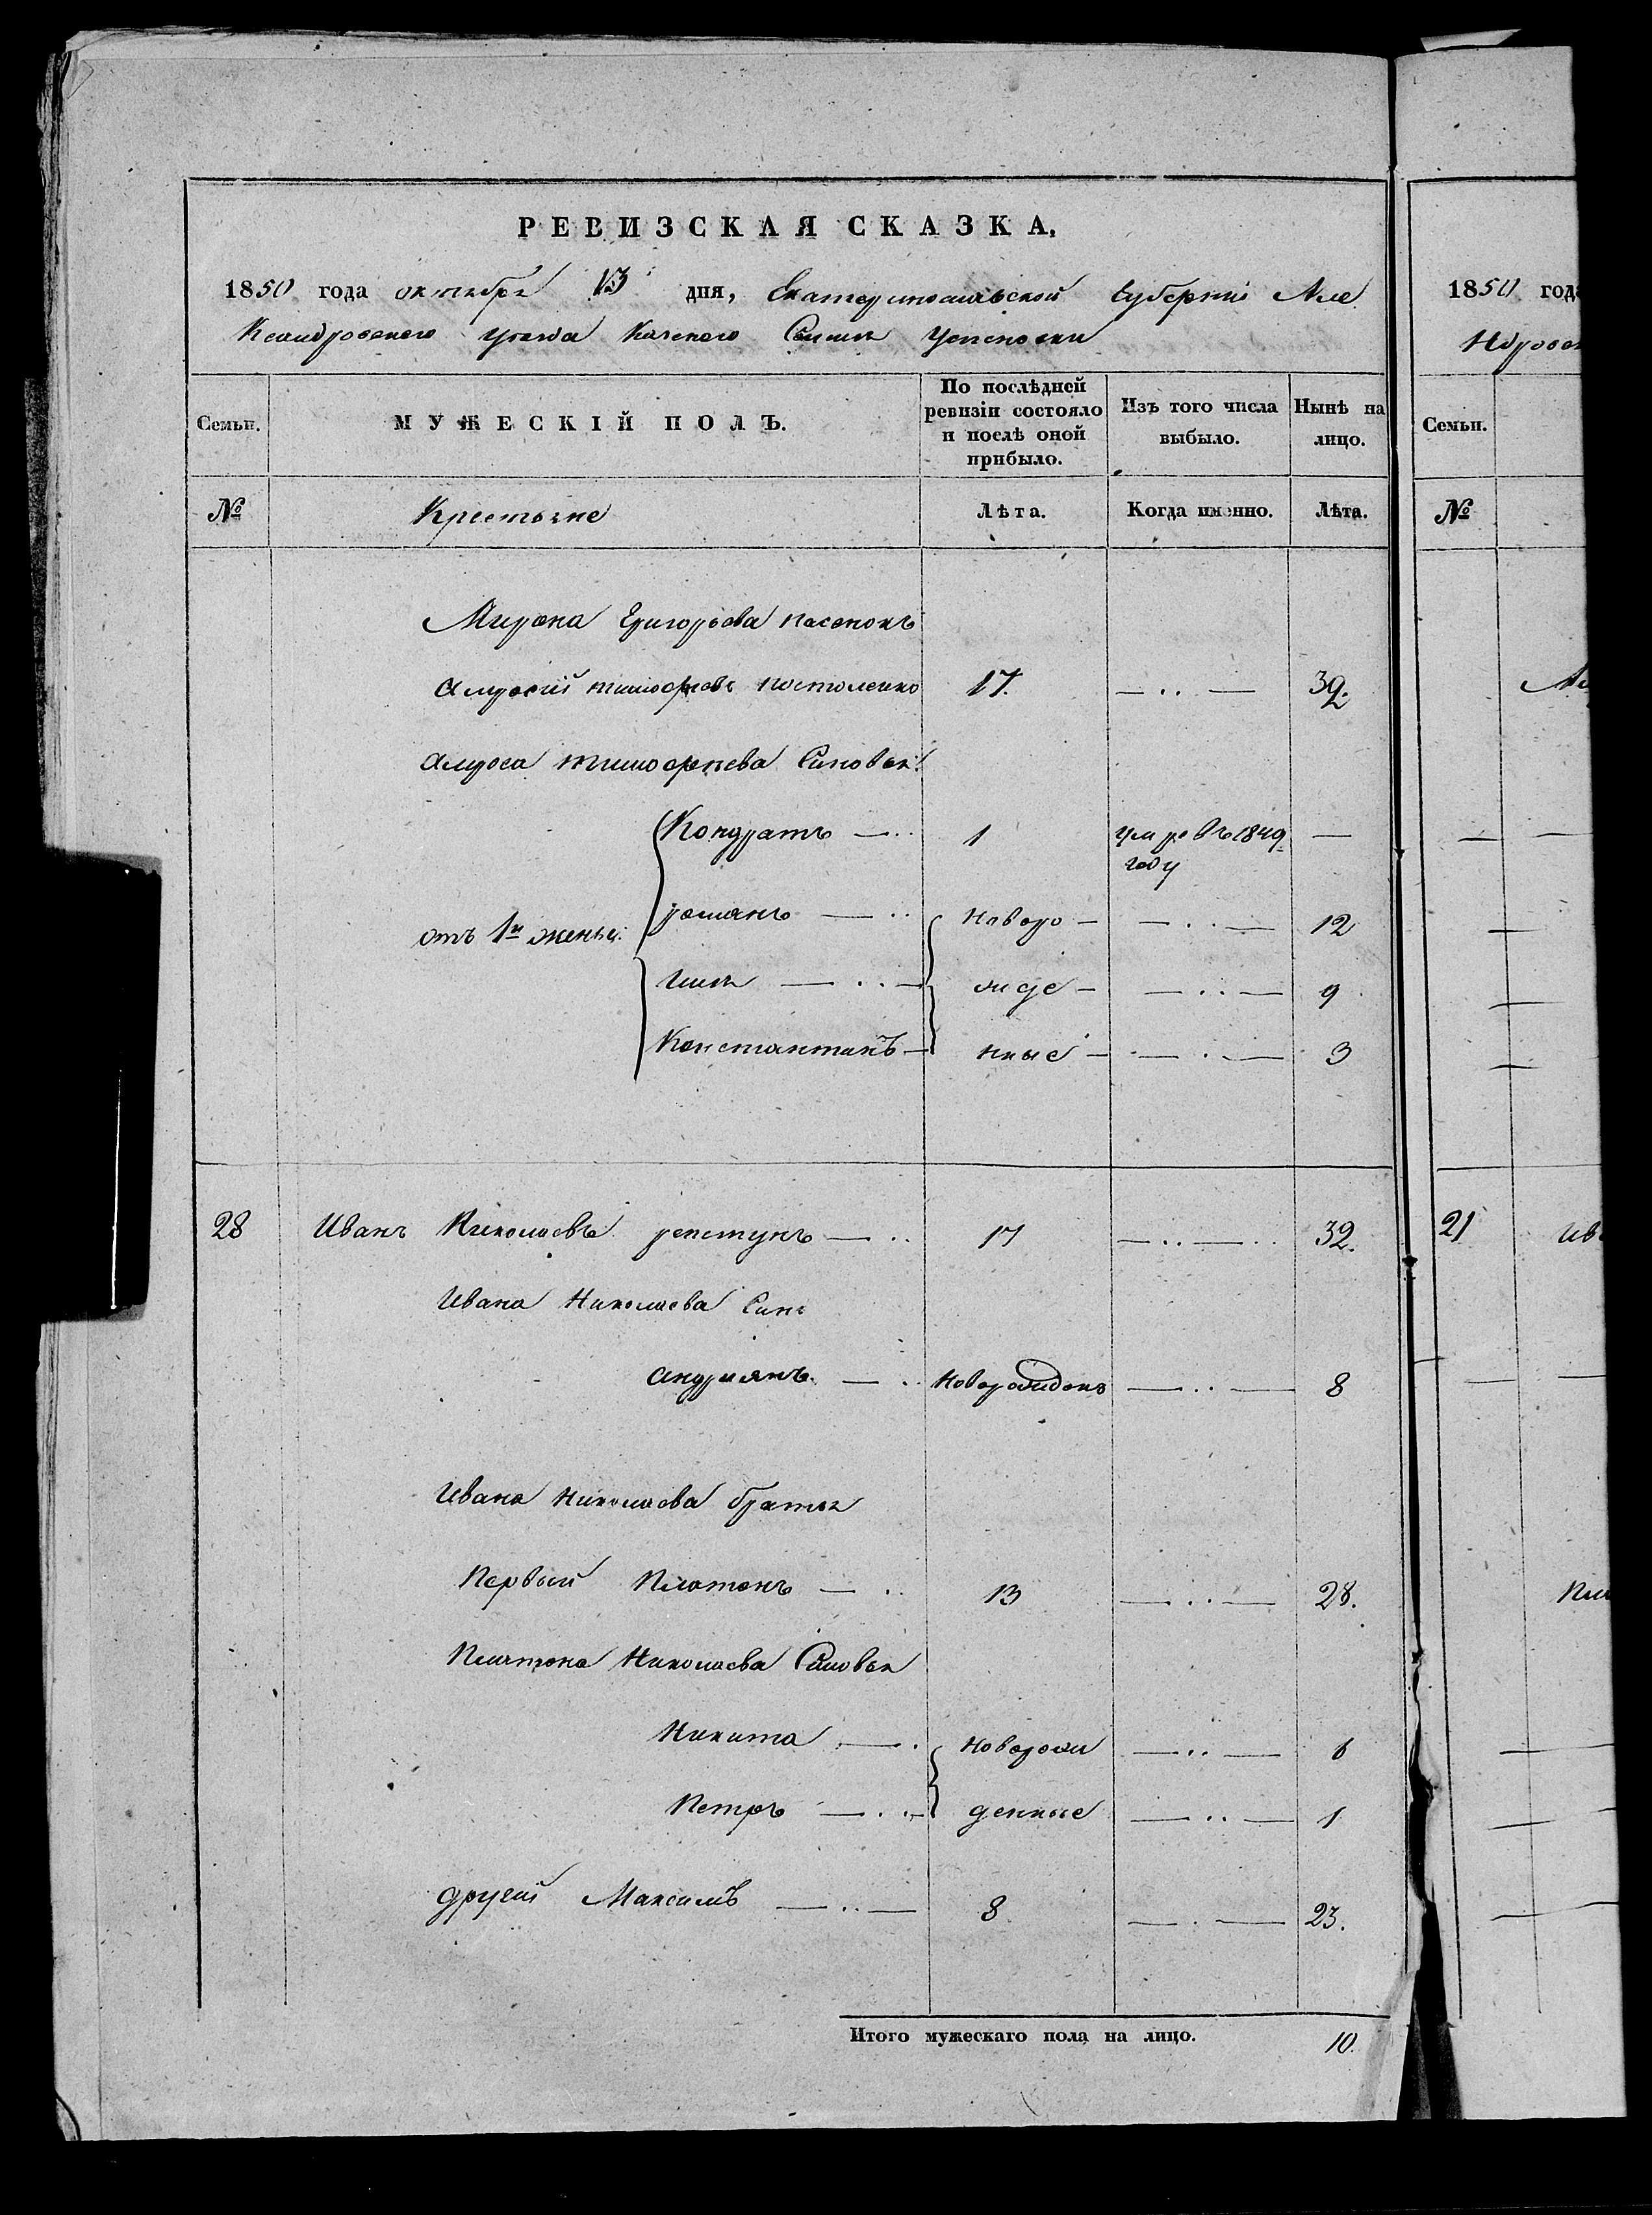 РЕВИЗСКАЯ СКАЗКА,
1850 года октября 13 дня, Екатеринославской Губерніи Але
Ксандровского уѣзда Казенного Селенія Успеновки
Семьи. МУЖЕСКІЙ ПОЛЪ. По послѣдней ревизіи состояло и послѣ оной прибыло. Изъ того числа выбыло. Нынѣ на лицо.
№ Крестьяне Лѣта. Когда именно. Лѣта.
Мирона Григорьева пасенокъ
Амросій тимофѣевъ 17. 39.
Амроса тимофѣева Синовья:
Кондратъ 1 умре въ 1849 году
отъ 1й жены:
романъ новоро 12
Илья жде 9
Константинъ нные 3
28 Иванъ Николаевъ 17 32.
Ивана Николаева Синъ
андриянъ новорожденъ 8
Ивана Николаева братья
Первый Платонъ 13 28.
Платона Николаева Синовья
Никита новорож 6
Петръ денные 1
другий Максимъ 8 23.
Итого мужескаго пола на лицо. 10.
1850 года
Семьи.
№
21 Ив